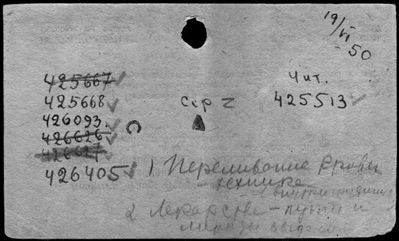 19/VI - 50
425667
425668
426093.
426626
426627
426405
Сер 2
Чит.
425513
1 Переливание крови
- техника
2 Лекарства - пути и
методы введен